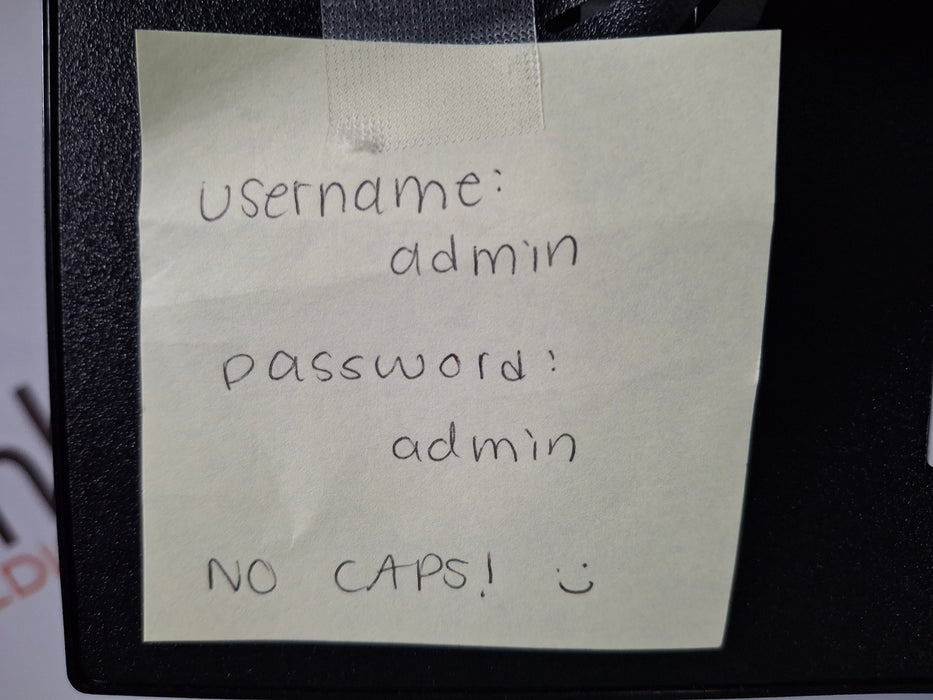 username:
admin
password:
admin
NO CAPS! :)